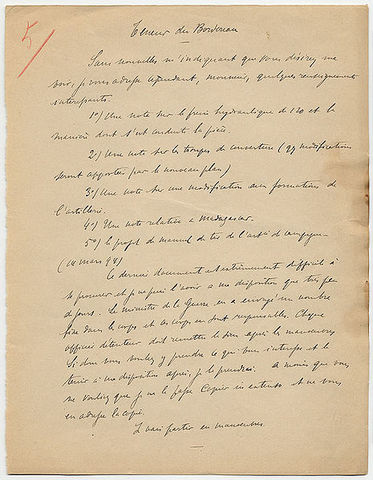 5
Teneur du Bordereau
Sans nouvelles m'indiquant que vous désirez me
voir, je vous adresse cependant, monsieur, quelques renseignements
intéressants.
1º) Une note sur le frein hydraulique de 120 et la
manière dont s'est conduite la pièce.
2º) Une note sur les troupes de couverture (qq modifications
seront apportées par le nouveau plan)
3º) Une note sur une modification aux formations de
l'artillerie.
4º) Une note relative à Madagascar.
5º) le projet de manuel de tir de l'artie de campagne
(14 mars 94)
Ce dernier document est extrêmement difficile à
se procurer et je ne puis l'avoir à ma disposition que très peu
de jours. Le ministre de la Guerre en a envoyé un nombre
fixe dans les corps et ces corps en sont responsables. Chaque
officier détenteur doit remettre le sien après les manœuvres
Si donc vous voulez y prendre ce qui vous intéresse et le
tenir à ma disposition après, je le prendrai. A moins que vous
ne vouliez que je le fasse copier in extenso et ne vous
en adresse la copie.
Je vais partir en manœuvres.